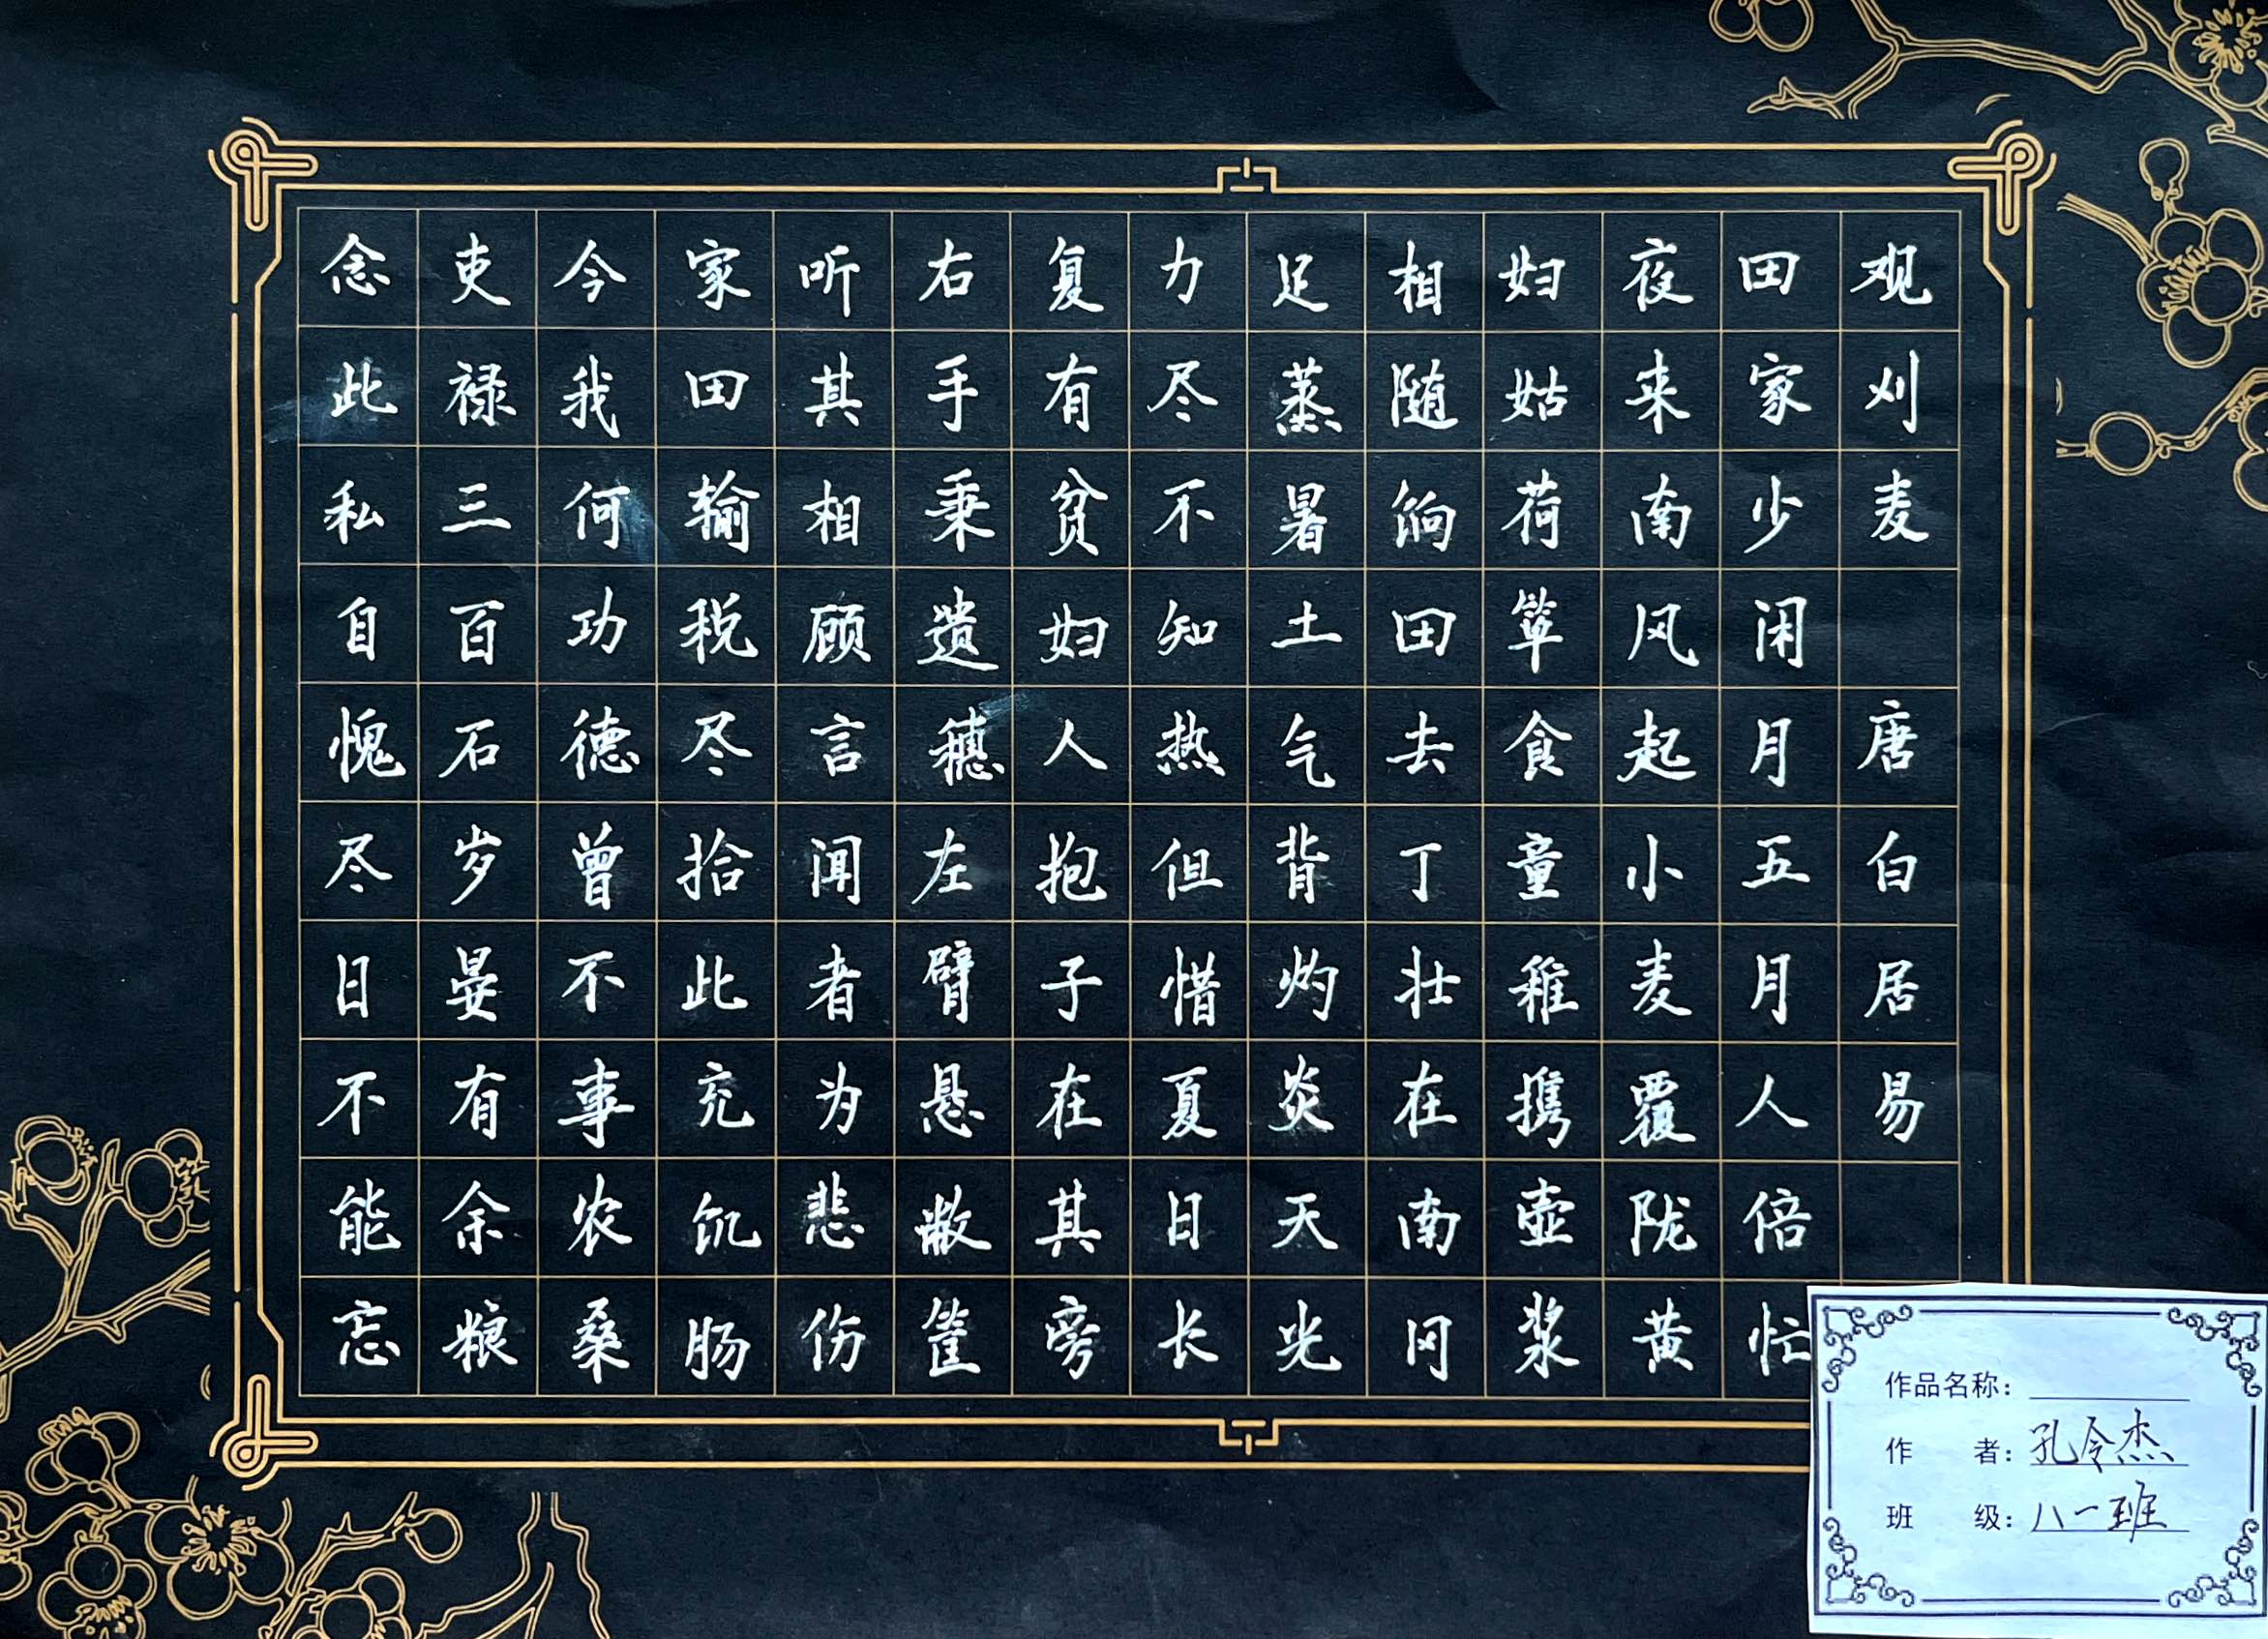 观刈麦 唐白居易
田家少闲月五月人倍忙
夜来南风起小麦覆陇黄
妇姑荷箪食童稚携壶浆
相随饷田去丁壮在南冈
足蒸暑土气背灼炎天光
力尽不知热但惜夏日长
复有贫妇人抱子在其旁
右手秉遗穗左臂悬敝筐
听其相顾言闻者为悲伤
家田输税尽拾此充饥肠
今我何功德曾不事农桑
吏禄三百石岁晏有余粮
念此私自愧尽日不能忘
作品名称：
作者：孔令杰
班级：八一班